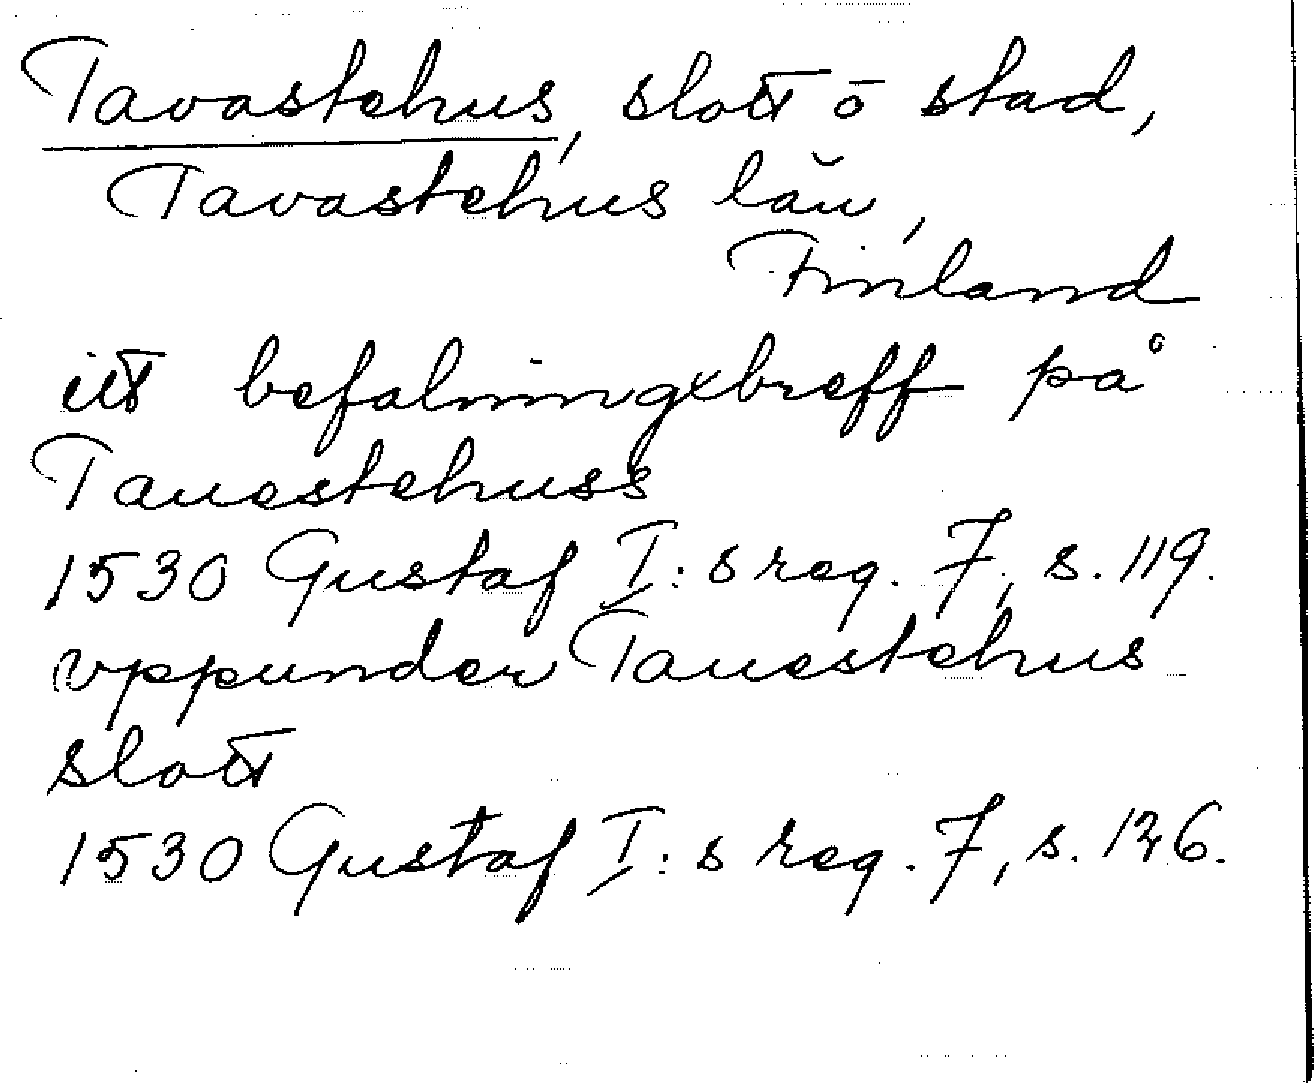 Tavastehus, slott o stad,
Tavastehus län,
Finland
itt befalningxbreff på
Tauestehuss
1530 Gustaf I:s reg. 7, s. 119.
vppunder Tauestehus
slott
1530 Gustaf I:s reg. 7, s. 126.